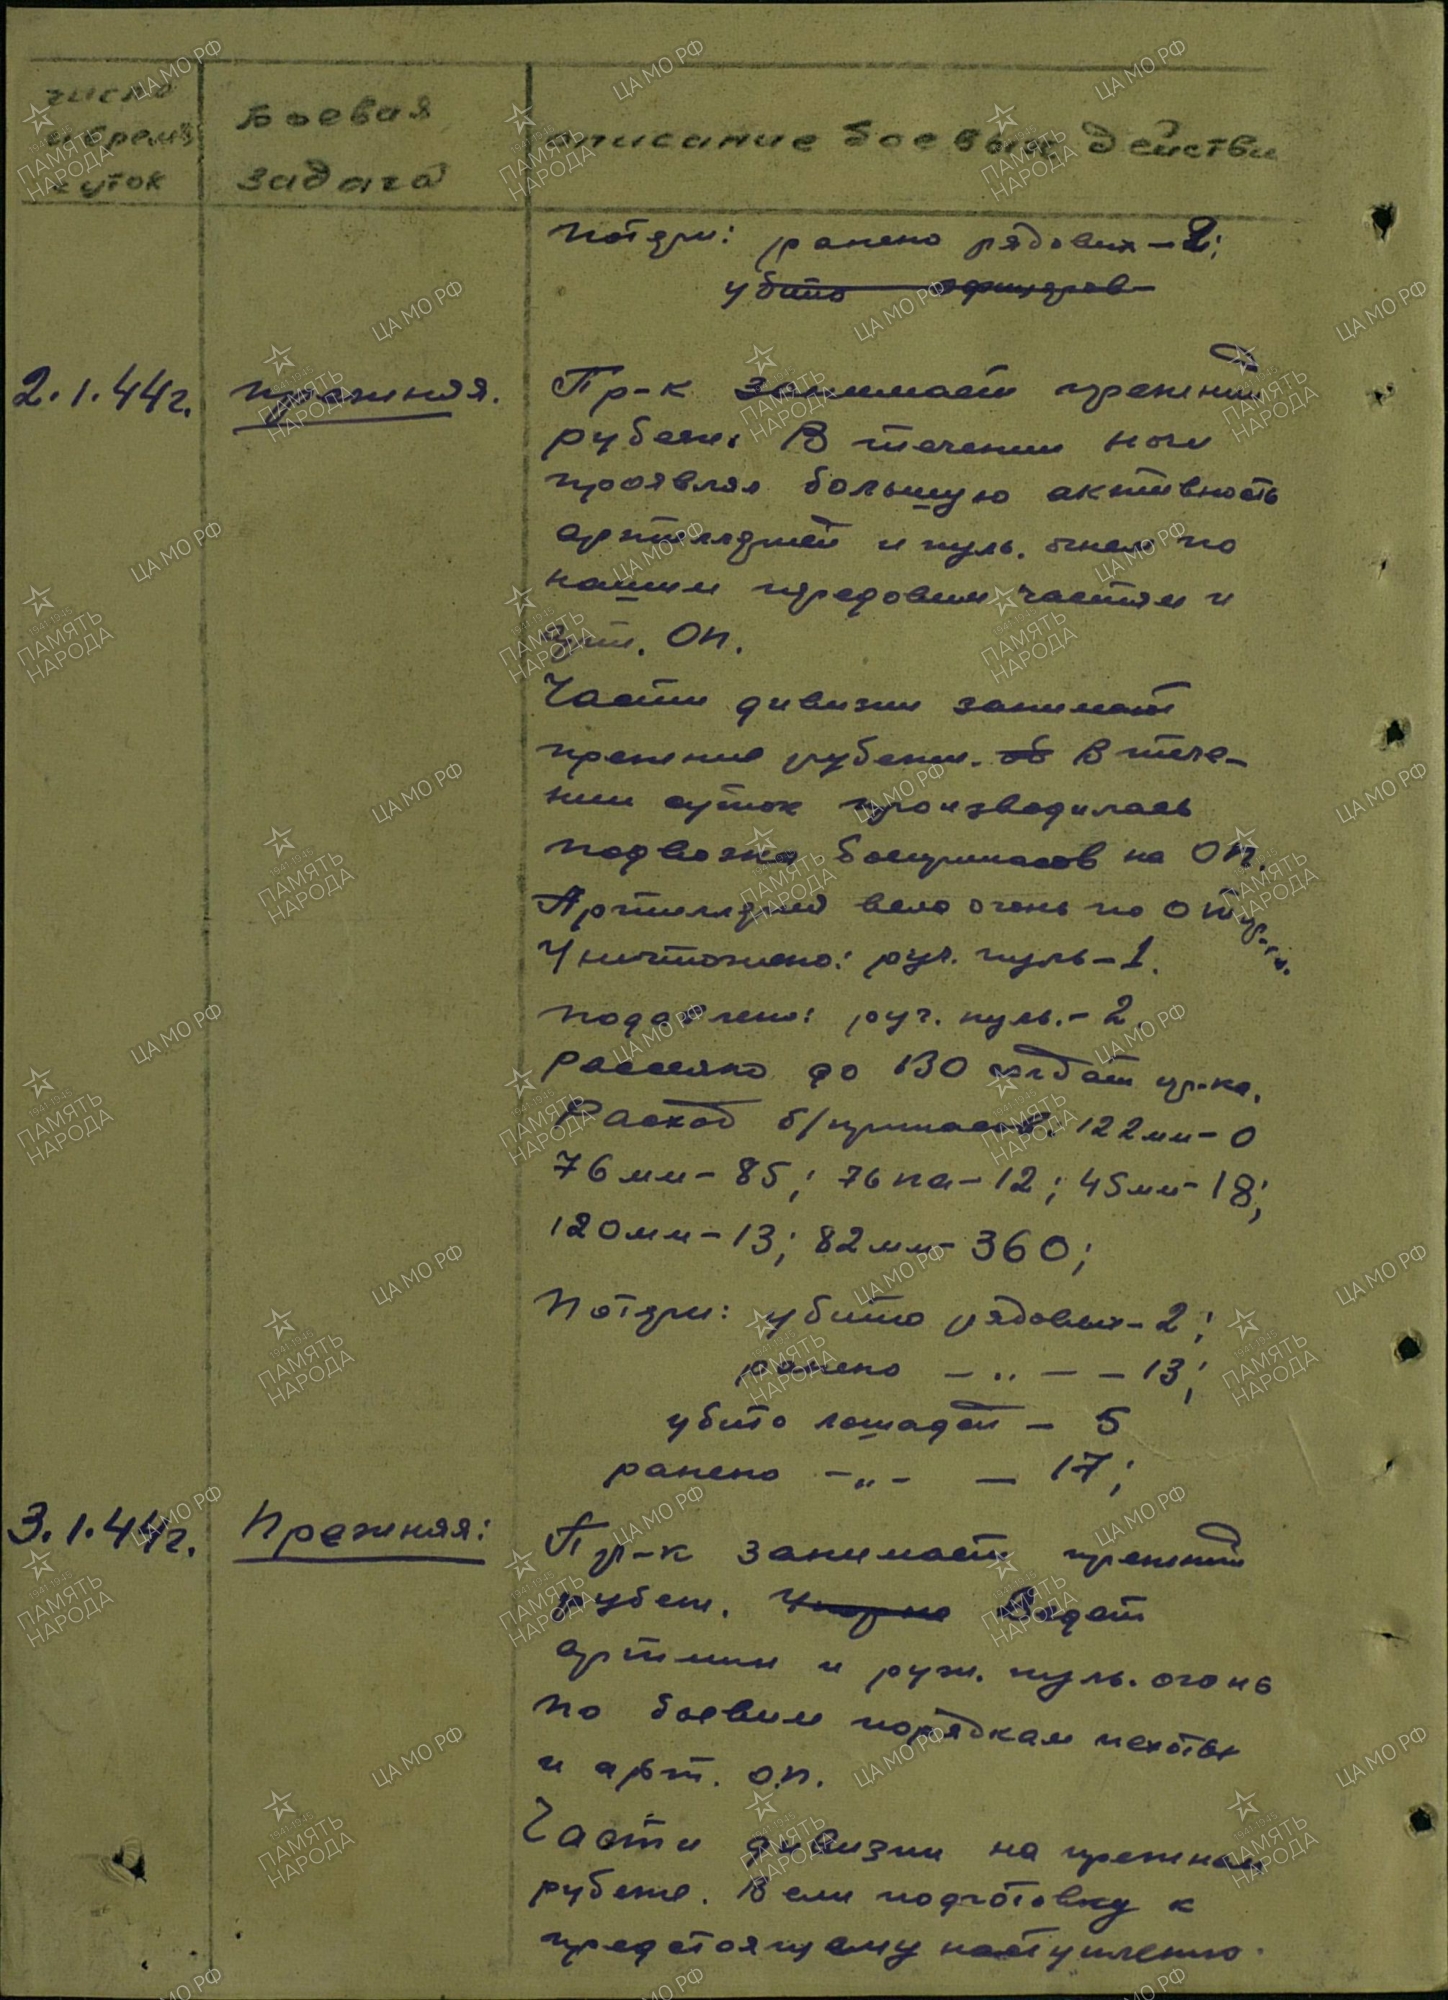 число и время суток
Боевая задача
описание боевых действи
Потери: ранено рядовых – 2;
убито офицеров
2.1.44г.
прежняя.
Пр-к занимает прежний
рубеж. В течении ночи
проявлял большую активность
артиллерией и пуль. огнем по
нашим передовым частям и
арт. ОП.
Части дивизии занимают
прежние рубежи. В тече-
нии суток производилась
подвозка боеприпасов на ОП.
Артиллерия вела огонь по от пр-ка.
Уничтожено: руч. пуль – 1.
подавлено: руч. пуль. – 2.
Рассеяно до 130 солдат пр-ка.
Расход б/припасов: 122мм – 0
76мм – 85; 76 па – 12; 45мм – 18;
120мм – 13; 82мм – 360;
Потери: убито рядовых – 2;
ранено – „ – – 13;
убито лошадей – 5
ранено – „ – – 17;
3.1.44г.
Прежняя:
Пр-к занимает прежний
рубеж. Ведет
артмин и руж. пуль. огонь
по боевым порядкам пехоты
и арт. О.П.
Части дивизии на прежнем
рубеже. Вели подготовку к
предстоящему наступлению.
ПАМЯТЬ НАРОДА
1941-1945
ЦА МО РФ